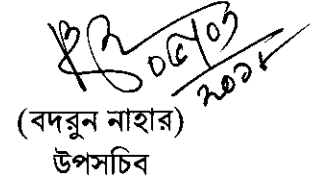 ০৫/০৩
২০১৮
(বদরুন নাহার)
উপসচিব